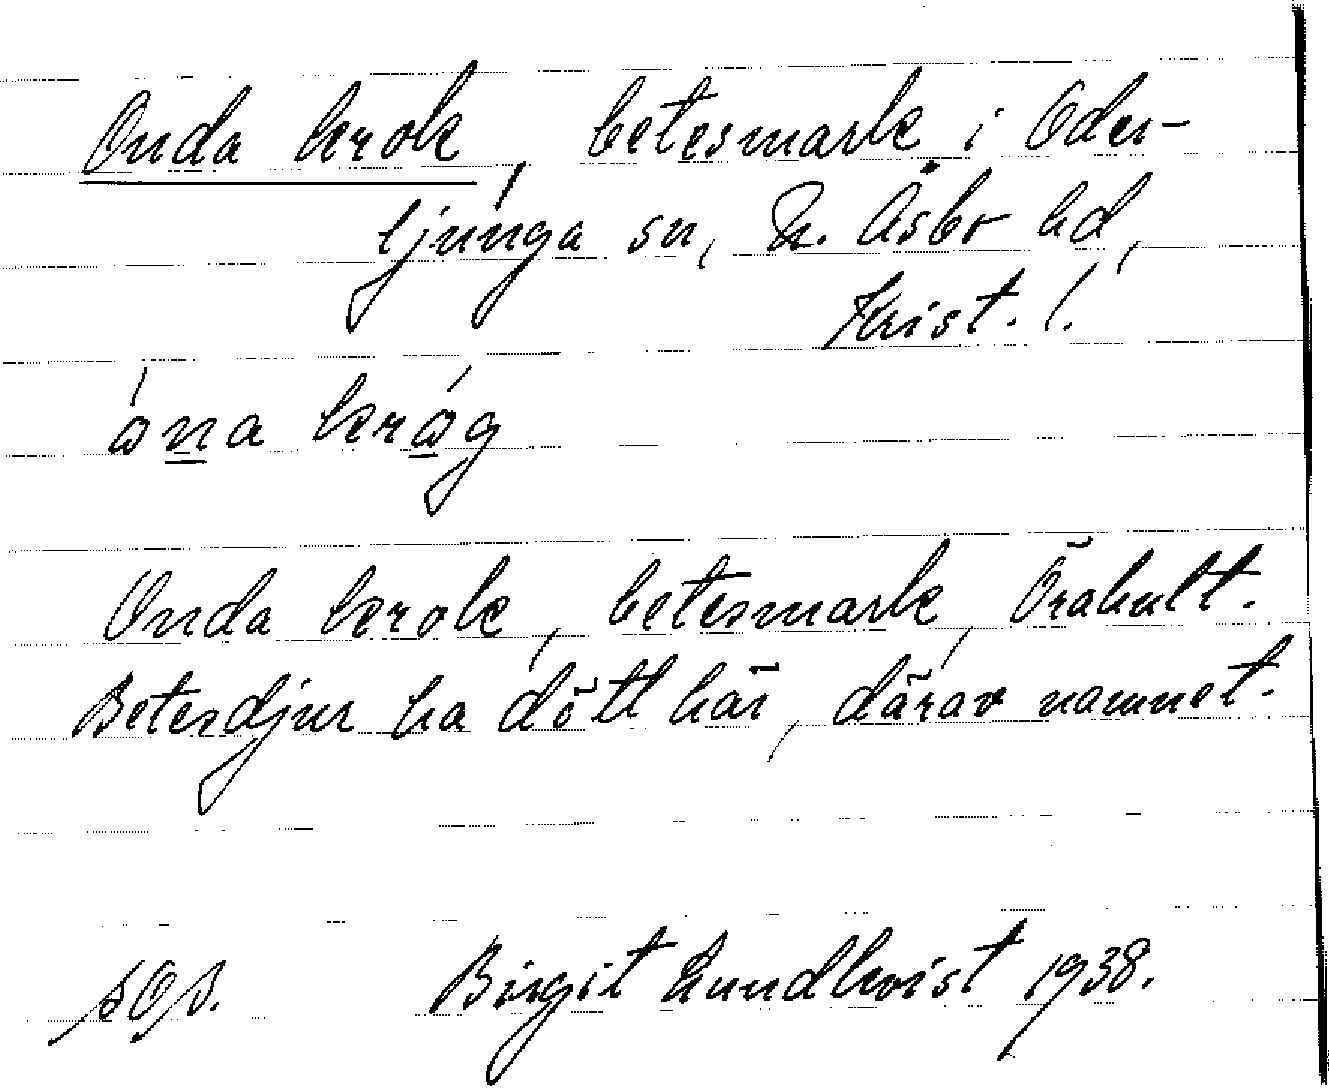 Onda krok, betesmark i Oder-
ljunga sn, N. Åsbo hd,
Krist. l.
ána kråg
Onda krok, betesmark, Örahult.
Betesdjur ha dött här, därav namnet.
Birgit Lundkvist 1938.